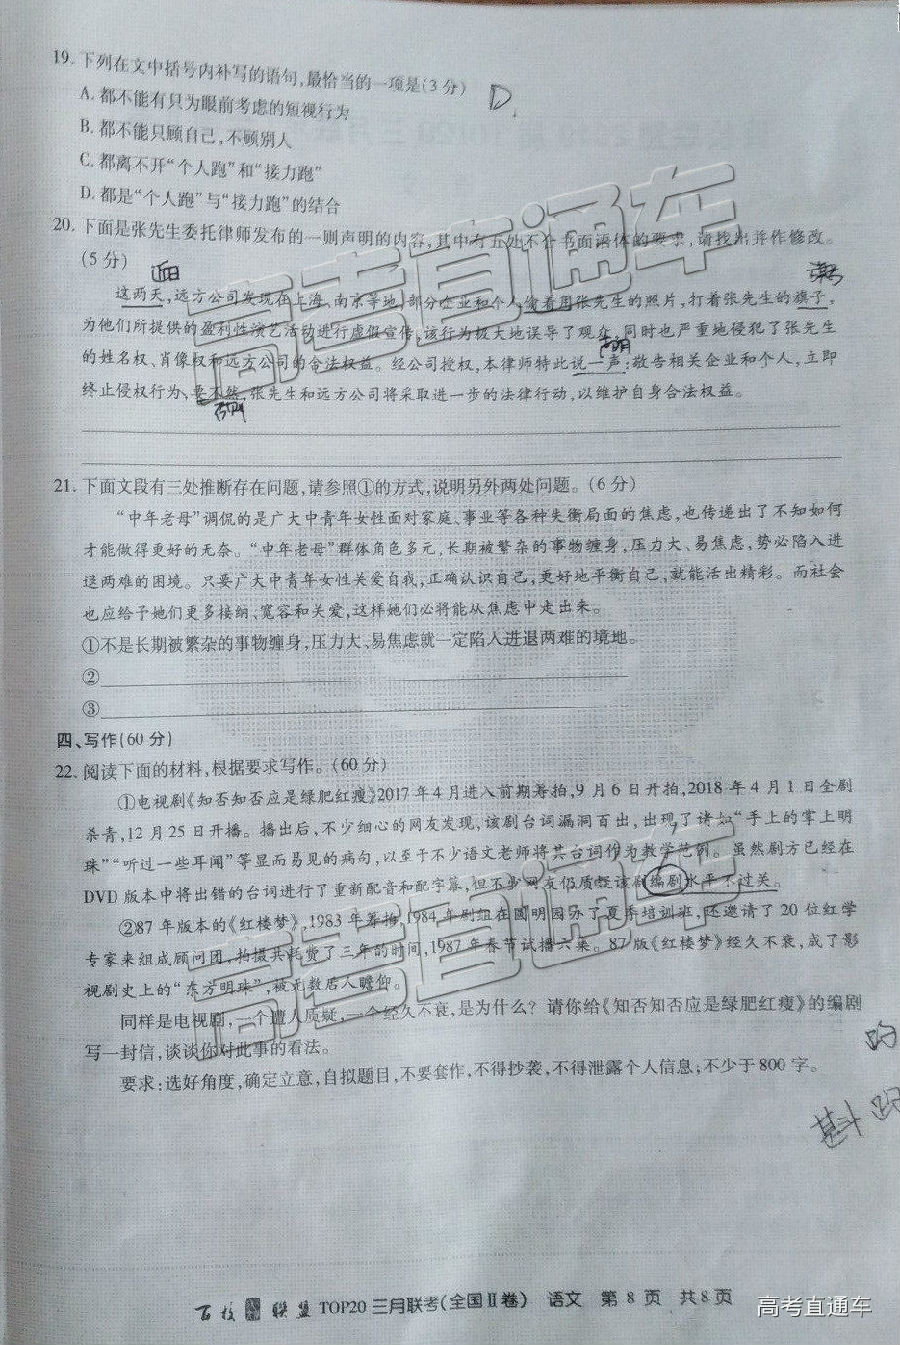 19. 下列在文中括号内补写的语句,最恰当的一项是(3分) D
A. 都不能有只为眼前考虑的短视行为
B. 都不能只顾自己,不顾别人
C. 都离不开“个人跑”和“接力跑”
D. 都是“个人跑”与“接力跑”的结合
20. 下面是张先生委托律师发布的一则声明的内容,其中有五处不合书面语体的要求,请找出并作修改。
(5分)
近日
这两天,远方公司发现在上海、南京等地,部分企业和个人偷着用张先生的照片,打着张先生的旗子,
为他们所提供的盈利性演艺活动进行虚假宣传,该行为极大地误导了观众,同时也严重地侵犯了张先生
的姓名权、肖像权和远方公司的合法权益。经公司授权,本律师特此说一声:敬告相关企业和个人,立即
终止侵权行为,要不然,张先生和远方公司将采取进一步的法律行动,以维护自身合法权益。
否则
21. 下面文段有三处推断存在问题,请参照①的方式,说明另外两处问题。(6分)
“中年老母”调侃的是广大中青年女性面对家庭、事业等各种失衡局面的焦虑,也传递出了不知如何
才能做得更好的无奈。“中年老母”群体角色多元,长期被繁杂的事物缠身,压力大、易焦虑,势必陷入进
退两难的困境。只要广大中青年女性关爱自我,正确认识自己,更好地平衡自己,就能活出精彩。而社会
也应给予她们更多接纳、宽容和关爱,这样她们必将能从焦虑中走出来。
①不是长期被繁杂的事物缠身,压力大、易焦虑就一定陷入进退两难的境地。
②
③
四、写作(60分)
22. 阅读下面的材料,根据要求写作。(60分)
①电视剧《知否知否应是绿肥红瘦》2017年4月进入前期筹拍,9月6日开拍,2018年4月1日全剧
杀青,12月25日开播。播出后,不少细心的网友发现,该剧台词漏洞百出,出现了诸如“手上的掌上明
珠”“听过一些耳闻”等显而易见的病句,以至于不少语文老师将其台词作为教学范例。虽然剧方已经在
DVD版本中将出错的台词进行了重新配音和配字幕,但不少网友仍质疑该剧编剧水平不过关。
②87年版本的《红楼梦》,1983年筹拍,1984年剧组在圆明园办了夏季培训班,还邀请了20位红学
专家来组成顾问团,拍摄共耗费了三年的时间,1987年春节试播六集。87版《红楼梦》经久不衰,成了影
视剧史上的“东方明珠”,被无数后人瞻仰。
同样是电视剧,一个遭人质疑,一个经久不衰,是为什么?请你给《知否知否应是绿肥红瘦》的编剧
写一封信,谈谈你对此事的看法。
要求:选好角度,确定立意,自拟题目,不要套作,不得抄袭,不得泄露个人信息;不少于800字。
百校联盟 TOP20 三月联考(全国Ⅱ卷) 语文 第8页 共8页
高考直通车
高考直通车
高考直通车